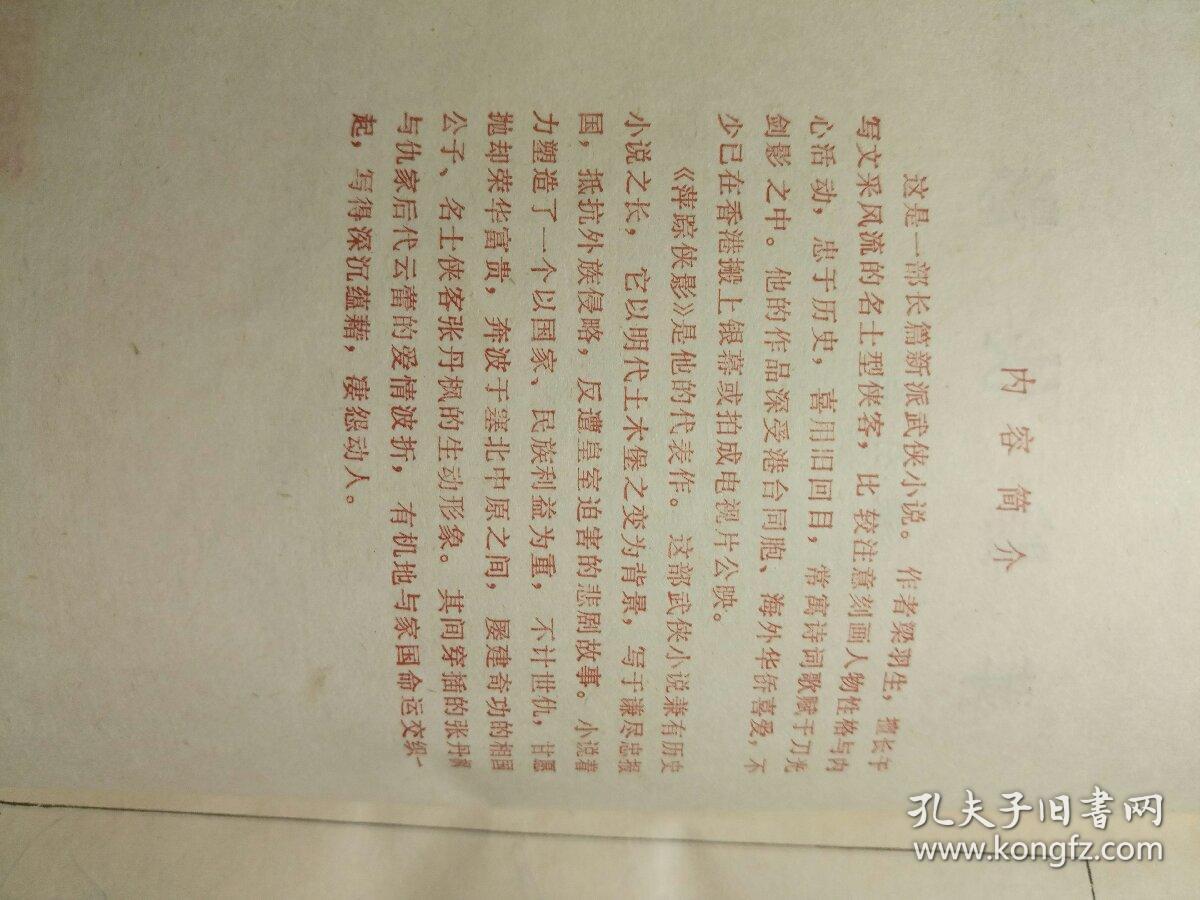 内容简介
这是一部长篇新派武侠小说。作者梁羽生，擅长
写文采风流的名士型侠客，比较注意刻画人物性格与内
心活动，忠于历史，喜用旧回目，常寓诗词歌赋于刀光
剑影之中。他的作品深受港台同胞、海外华侨喜爱，不
少已在香港搬上银幕或拍成电视片公映。
《萍踪侠影》是他的代表作。这部武侠小说兼有历史
小说之长，它以明代土木堡之变为背景，写于谦尽忠报
国，抵抗外族侵略，反遭皇室迫害的悲剧故事。小说着
力塑造了一个以国家、民族利益为重，不计世仇，甘愿
抛却荣华富贵，奔波于塞北中原之间，屡建奇功的相国
公子、名士侠客张丹枫的生动形象。其间穿插的张丹枫
与仇家后代云蕾的爱情波折，有机地与家国命运交织一
起，写得深沉蕴藉，凄怨动人。
孔夫子旧书网
www.kongfz.com